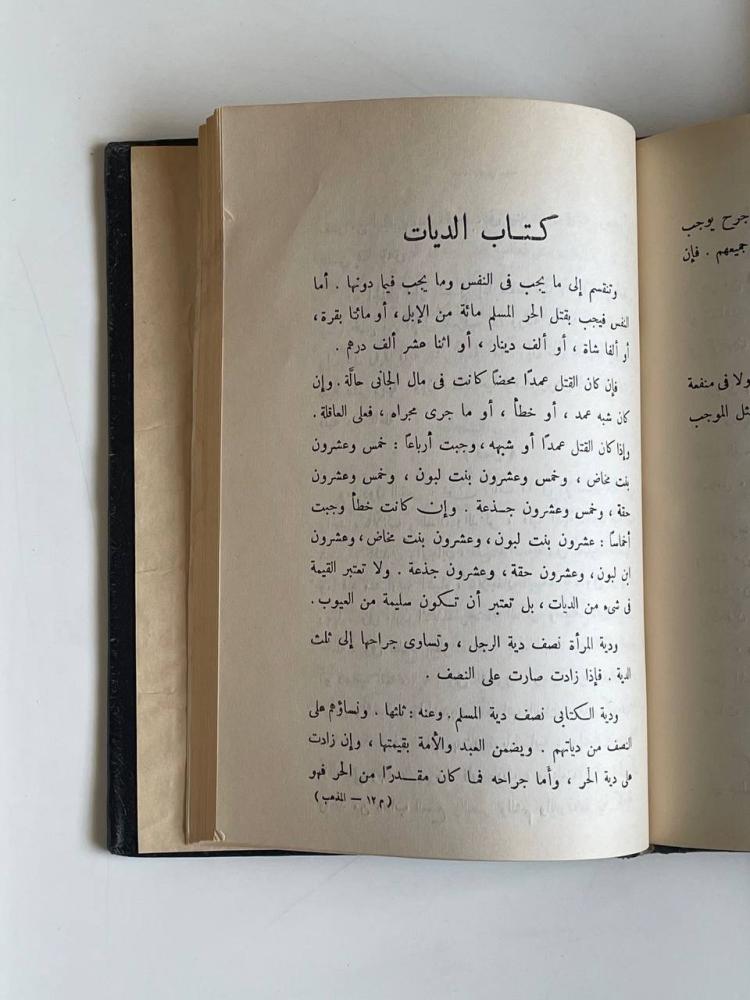 جرح يوجب
جميعهم . فإن
ولا فى منفعة
الموجب
كتاب الديات
وتنقسم إلى ما يجب فى النفس وما يجب فيما دونها . أما
النفس فيجب بقتل الحر المسلم مائة من الإبل ، أو مائتا بقرة ،
أو ألفا شاة ، أو ألف دينار ، أو اثنا عشر ألف درهم .
فإن كان القتل عمدًا محضًا كانت فى مال الجانى حالَّة . وإن
كان شبه عمد ، أو خطأ ، أو ما جرى مجراه ، فعلى العاقلة .
وإذا كان القتل عمدًا أو شبهه ، وجبت أرباعًا : خمس وعشرون
بنت مخاض ، وخمس وعشرون بنت لبون ، وخمس وعشرون
حقة ، وخمس وعشرون جذعة . وإن كانت خطأ وجبت
أخماسًا : عشرون بنت لبون ، وعشرون بنت مخاض ، وعشرون
ابن لبون ، وعشرون حقة ، وعشرون جذعة . ولا تعتبر القيمة
فى شىء من الديات ، بل تعتبر أن تكون سليمة من العيوب .
ودية المرأة نصف دية الرجل ، وتساوى جراحها إلى ثلث
الدية . فإذا زادت صارت على النصف .
ودية الكتابى نصف دية المسلم . وعنه : ثلثها . ونساؤهم على
النصف من دياتهم . ويضمن العبد والأمة بقيمتها ، وإن زادت
على دية الحر ، وأما جراحه فما كان مقدرًا من الحر فهو
( م ١٢ — المذهب )